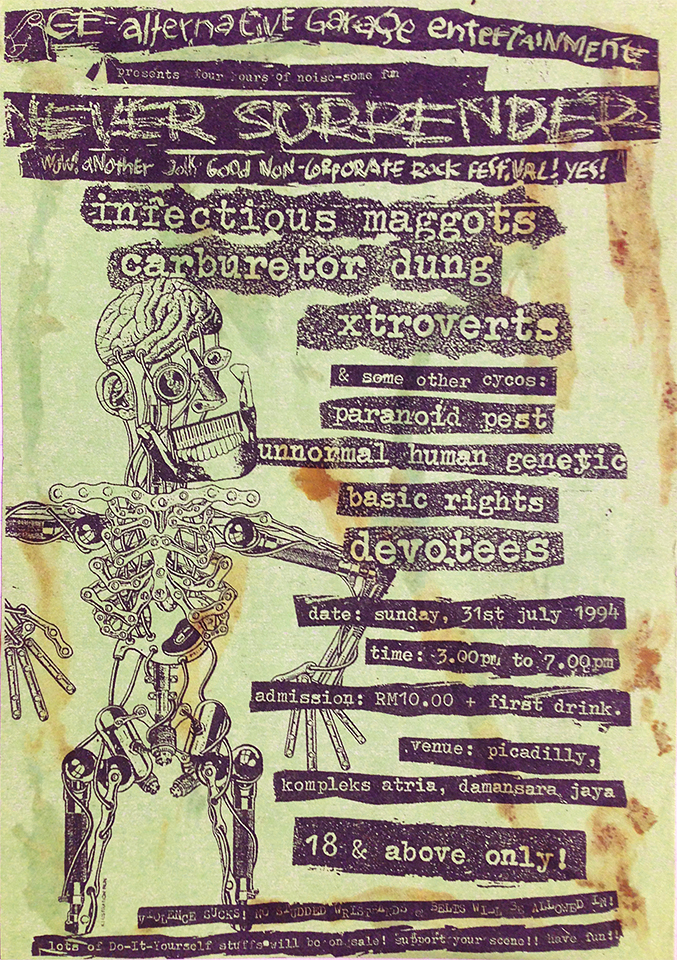 AGE alternative Garage entertainment
presents four hours of noise-some fun
NEVER SURRENDER
WOW! another Good Non-Corporate Rock Festival! YES!
infectious maggots
carburetor dung
xtroverts
& some other cycos:
paranoid pest
unnormal human genetic
basic rights
devotees
date: sunday, 31st july 1994
time: 3.00pm to 7.00pm
admission: RM10.00 + first drink.
venue: picadilly,
kompleks atria, damansara jaya
18 & above only!
VIOLENCE SUCKS! NO STUDDED WRISTBANDS & BELTS WILL BE ALLOWED IN!
lots of Do-It-Yourself stuffs will be on sale! Support your scene!! have fun!!